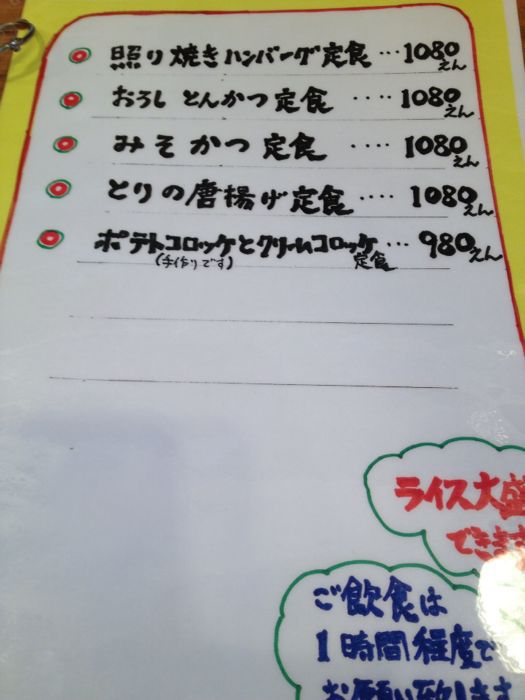 照り焼きハンバーグ定食…1080えん
おろしとんかつ定食‥‥1080えん
みそかつ定食‥‥1080えん
とりの唐揚げ定食‥‥1080えん
ポテトコロッケとクリームコロッケ…980えん
(手作りです) 定食
ライス大盛
できます
ご飲食は
1時間程度で
お願い致します